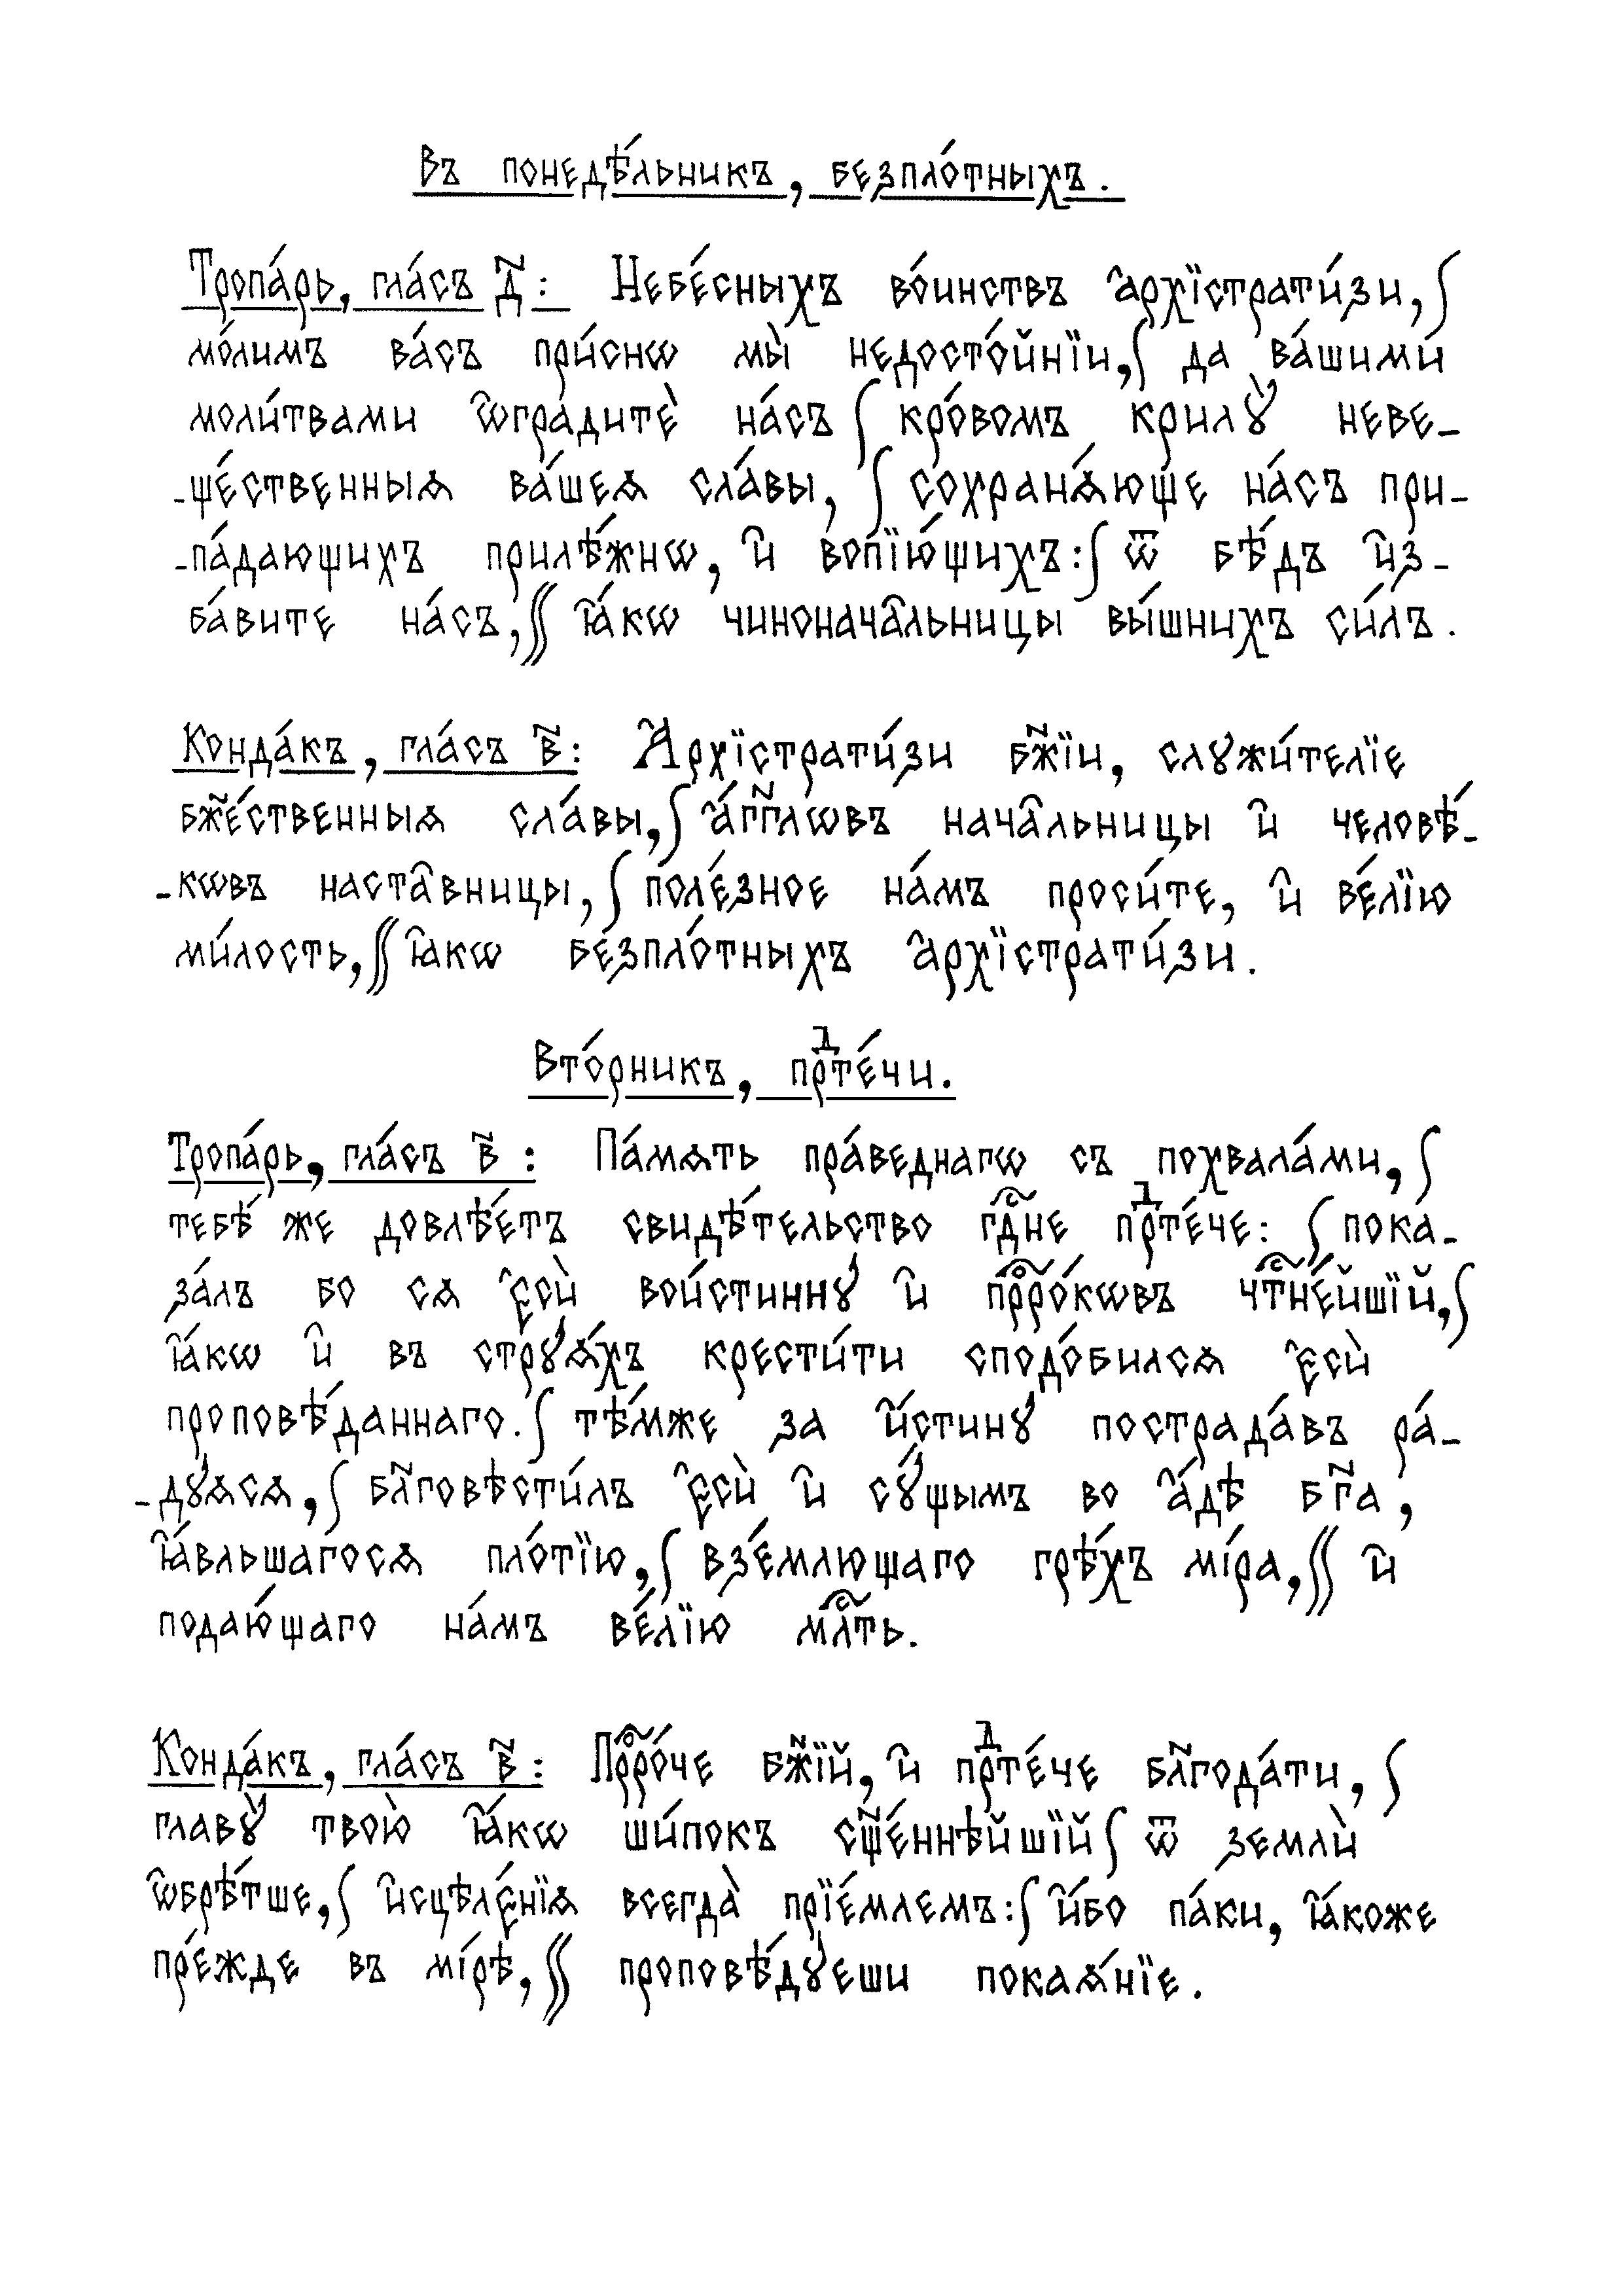 Въ понедѣ́льникъ, безпло́тныхъ.
Тропа́рь, гла́съ д҃: Небе́сныхъ во́инствъ а҆рхїстрати́зи, ∫
мо́лимъ ва́съ при́снѡ мы̀ недосто́йнїи, ∫ да ва́шими
моли́твами ѡ҆градитѐ на́съ ∫ кро́вомъ крилꙋ̀ неве-
-ще́ственныѧ ва́шеѧ сла́вы, ∫ сохранѧ́юще на́съ при-
-па́дающихъ прилѣ́жнѡ, и҆ вопїю́щихъ: ∫ ѿ бѣ́дъ и҆з-
ба́вите на́съ, ∫∫ ꙗ҆́кѡ чинонача̑льницы вы́шнихъ си́лъ.
Конда́къ, гла́съ в҃: А҆рхїстрати́зи бж҃їи, слꙋжи́телїе
бж҃е́ственныѧ сла́вы, ∫ а҆́гг҃лѡвъ нача̑льницы и҆ человѣ́-
-кѡвъ наста̑вницы, ∫ поле́зное на́мъ проси́те, и҆ ве́лїю
ми́лость, ∫∫ ꙗ҆́кѡ безпло́тныхъ а҆рхїстрати́зи.
Вто́рникъ, прⷣте́чи.
Тропа́рь, гла́съ в҃: Па́мѧть пра́веднагѡ съ похвала́ми, ∫
тебѣ́ же довлѣ́етъ свидѣ́тельство гдⷭ҇не прⷣте́че: ∫ пока-
за́лъ бо сѧ є҆сѝ вои́стиннꙋ и҆ прⷪ҇ро́кѡвъ чтⷭ҇не́йшїй, ∫
ꙗ҆́кѡ и҆ въ стрꙋѧ́хъ крести́ти сподо́билсѧ є҆сѝ
проповѣ́даннаго. ∫ тѣ́мже за и҆́стинꙋ пострада́въ ра́-
-дꙋѧсѧ, ∫ бл҃говѣсти́лъ є҆сѝ и҆ сꙋ́щымъ во а҆́дѣ бг҃а,
ꙗ҆́вльшагосѧ пло́тїю, ∫ взе́млющаго грѣ́хъ мі́ра, ∫∫ и҆
подаю́щаго на́мъ ве́лїю млⷭ҇ть.
Конда́къ, гла́съ в҃: Прⷪ҇ро́че бж҃їй, и҆ прⷣте́че бл҃года́ти, ∫
главꙋ̀ твою̀ ꙗ҆́кѡ ши́покъ сщ҃е́ннѣйшїй ∫ ѿ землѝ
ѡ҆брѣ́тше, ∫ и҆сцѣле́нїѧ всегда̀ прїе́млемъ: ∫ и҆́бо па́ки, ꙗ҆́коже
пре́жде въ мі́рѣ, ∫∫ проповѣ́дꙋеши покаѧ́нїе.